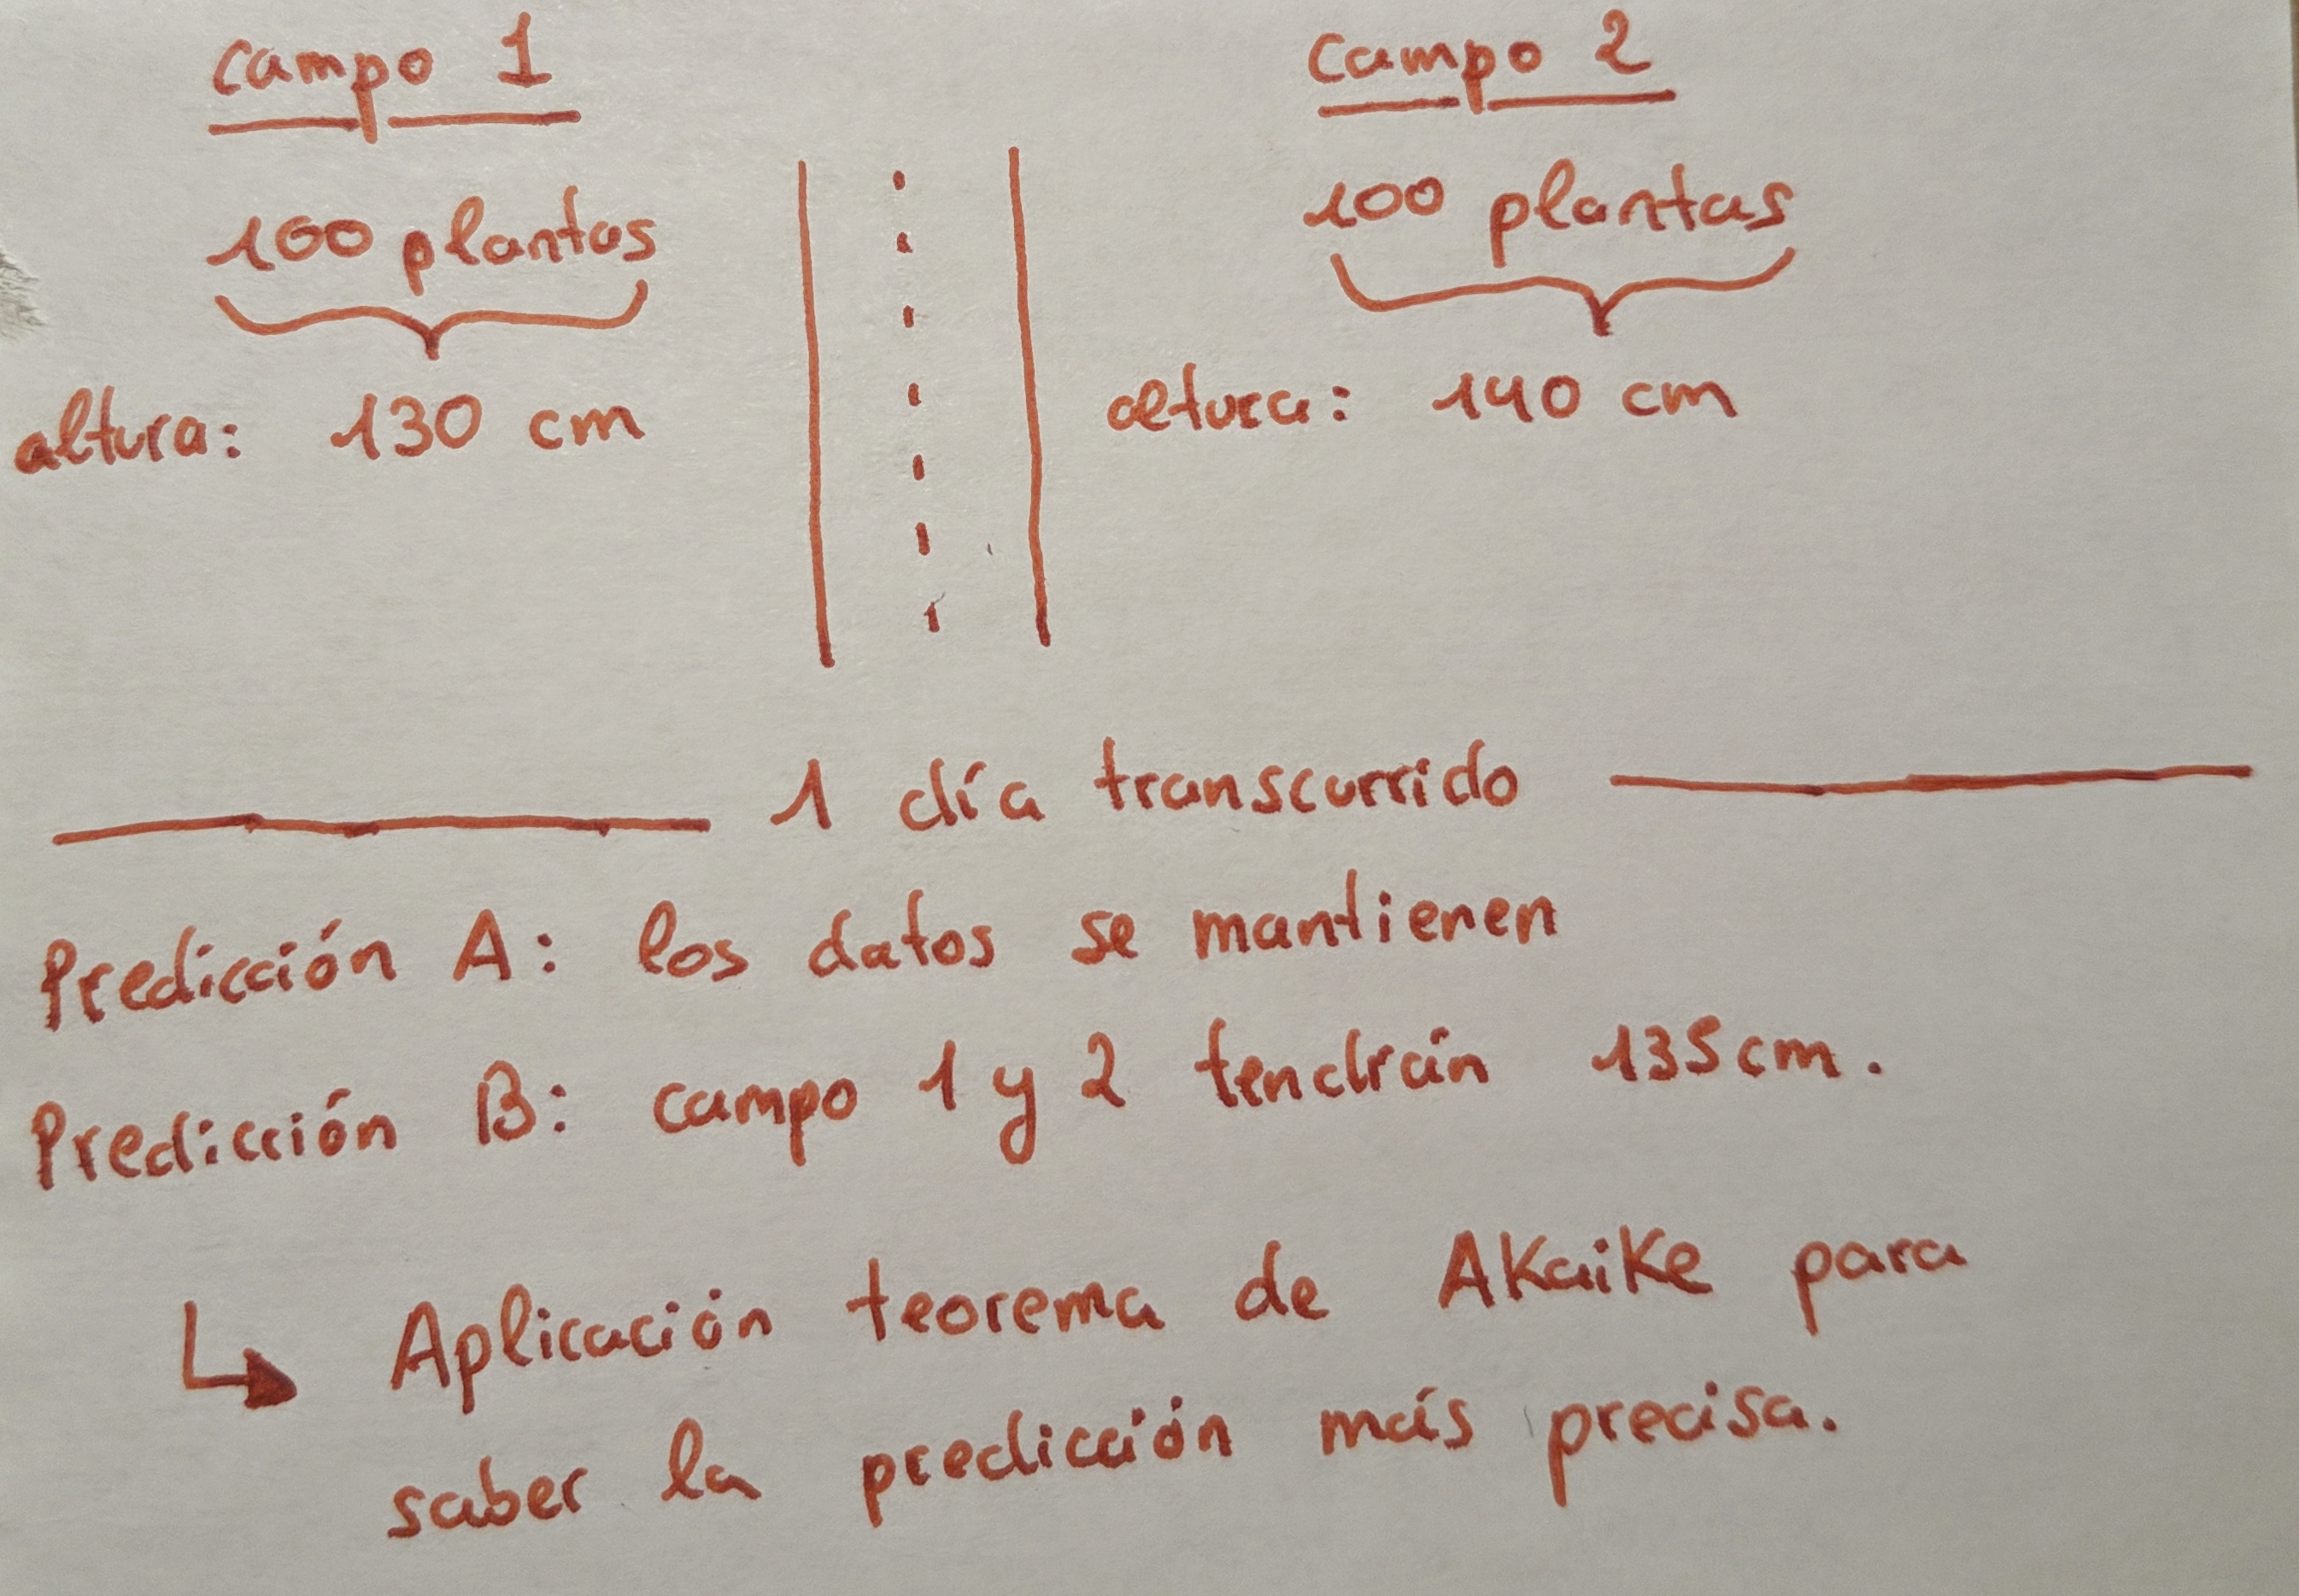 campo 1
campo 2
100 plantas
100 plantas
altura: 130 cm
altura: 140 cm
1 día transcurrido
Predicción A: los datos se mantienen
Predicción B: campo 1 y 2 tendrán 135 cm.
Aplicación teorema de AKaiKe para
saber la predicción más precisa.